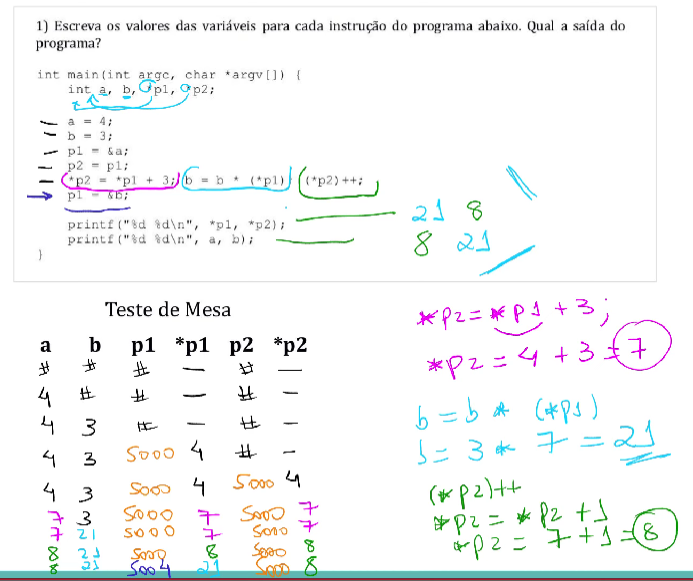 1) Escreva os valores das variáveis para cada instrução do programa abaixo. Qual a saída do
programa?
int main(int argc, char *argv[]) {
int a, b, *p1, *p2;
a = 4;
b = 3;
p1 = &a;
p2 = p1;
*p2 = *p1 + 3; b = b * (*p1) (*p2)++;
p1 = &b;
printf("%d %d\n", *p1, *p2);
printf("%d %d\n", a, b);
}
21 8
8 21
Teste de Mesa
a b p1 *p1 p2 *p2
# # # — # —
4 # # — # —
4 3 # — # —
4 3 5000 4 # —
4 3 5000 4 5000 4
7 3 5000 7 5000 7
7 21 5000 7 5000 7
8 21 5000 8 5000 8
8 21 5004 21 5000 8
*p2 = *p1 + 3;
*p2 = 4 + 3 = 7
b = b * (*p1)
b = 3 * 7 = 21
(*p2)++
*p2 = *p2 + 1
*p2 = 7 + 1 = 8